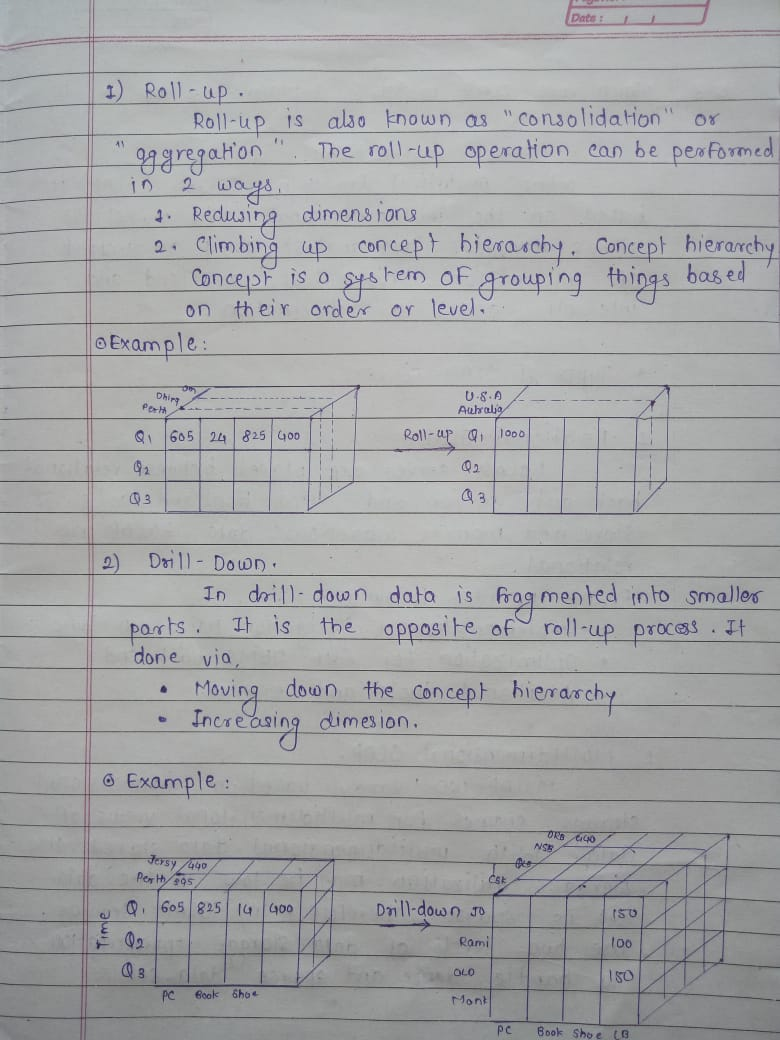 Date :
1) Roll-up .
Roll-up is also known as "consolidation" or
"aggregation". The roll-up operation can be performed
in 2 ways.
1. Redusing dimensions
2. Climbing up concept hierarchy. Concept hierarchy
Concept is a system of grouping things based
on their order or level.
Example :
Perth
Q1 605 24 825 400
Q2
Q3
Roll-up
U.S.A
Q1 1000
Q2
Q3
2) Drill-Down.
In drill-down data is fragmented into smaller
parts. It is the opposite of roll-up process. It
done via,
• Moving down the concept hierarchy
• Increasing dimesion.
Example :
Jersy 440
Perth 395
Time
Q1 605 825 14 400
Q2
Q3
PC Book Shoe
Drill-down
440
150
Rami 100
150
PC Book Shoe